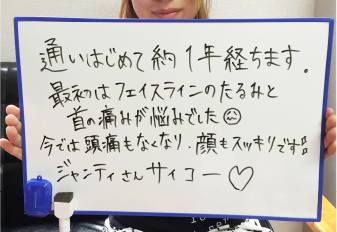 通いはじめて約1年経ちます.
最初はフェイスラインのたるみと
首の痛みが悩みでした☺
今では頭痛もなくなり、顔もスッキリです!!
ジャンティさんサイコー♡